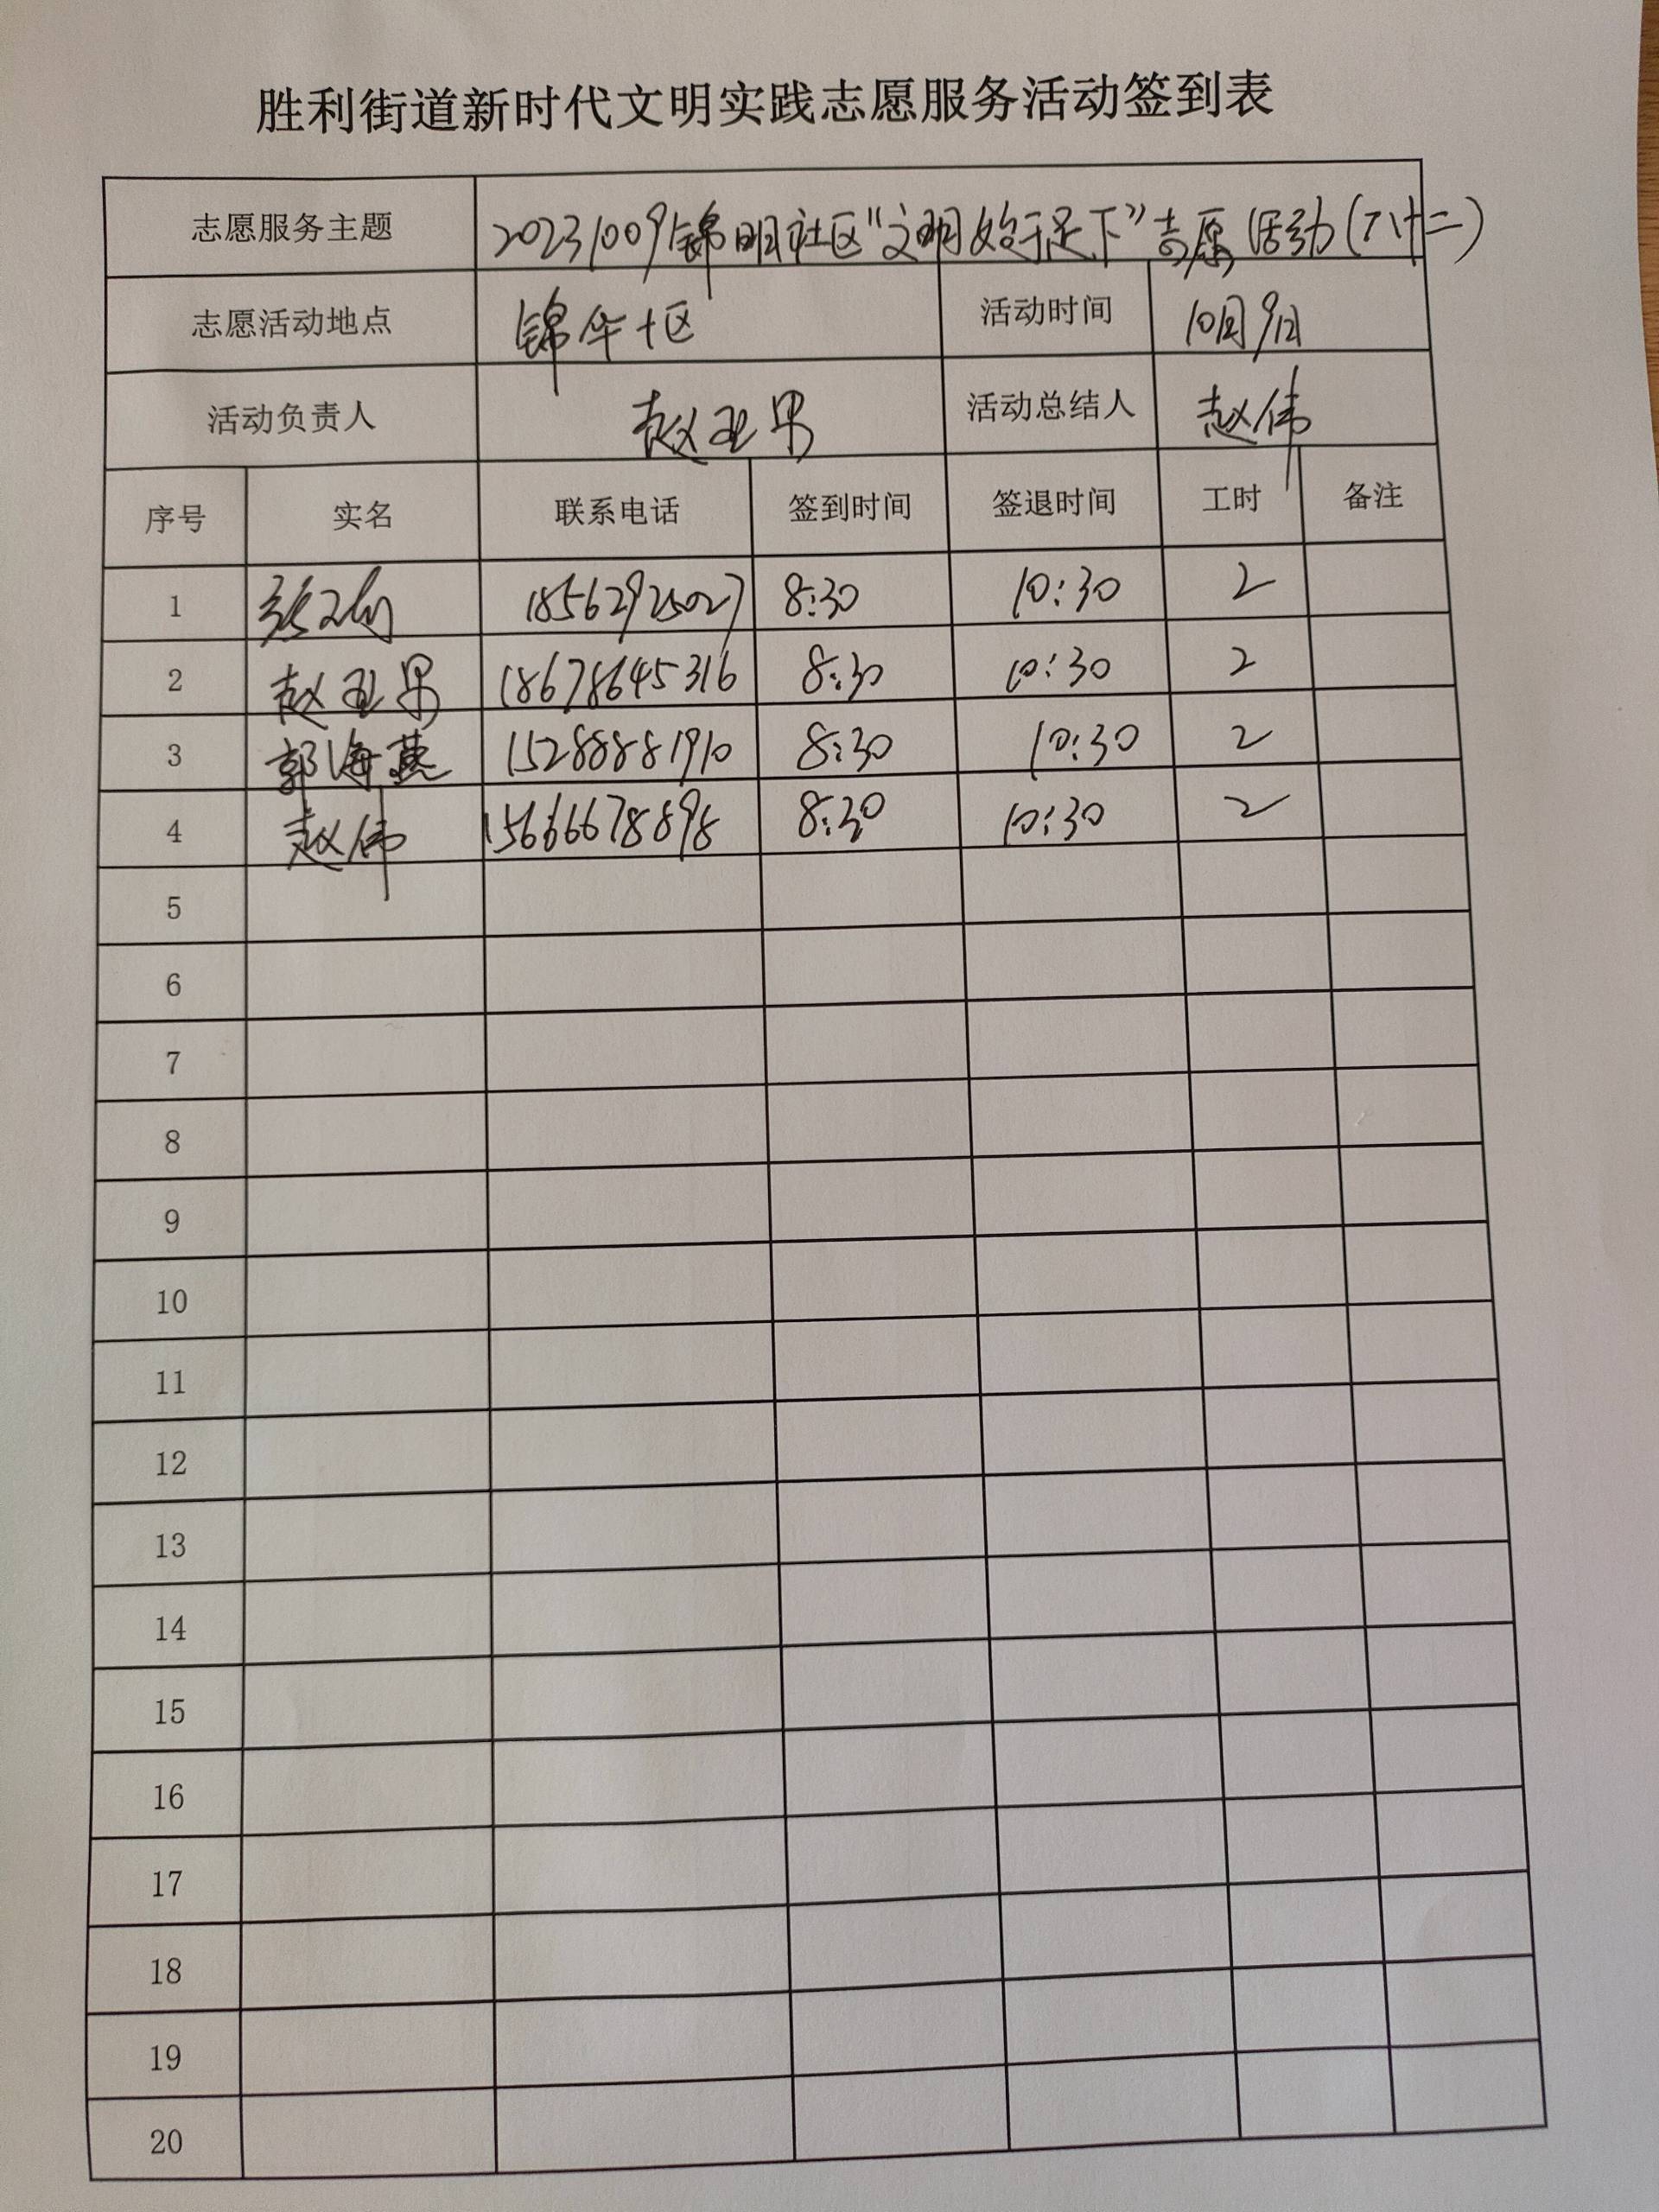 胜利街道新时代文明实践志愿服务活动签到表
志愿服务主题 20231009锦明社区“文明始于足下”志愿活动(八十二)
志愿活动地点 锦华十区 活动时间 10月9日
活动负责人 赵亚男 活动总结人 赵伟
序号 实名 联系电话 签到时间 签退时间 工时 备注
1 18562925027 8:30 10:30 2
2 赵亚男 18678645316 8:30 10:30 2
3 郭海燕 15288881910 8:30 10:30 2
4 赵伟 15666678898 8:30 10:30 2
5
6
7
8
9
10
11
12
13
14
15
16
17
18
19
20